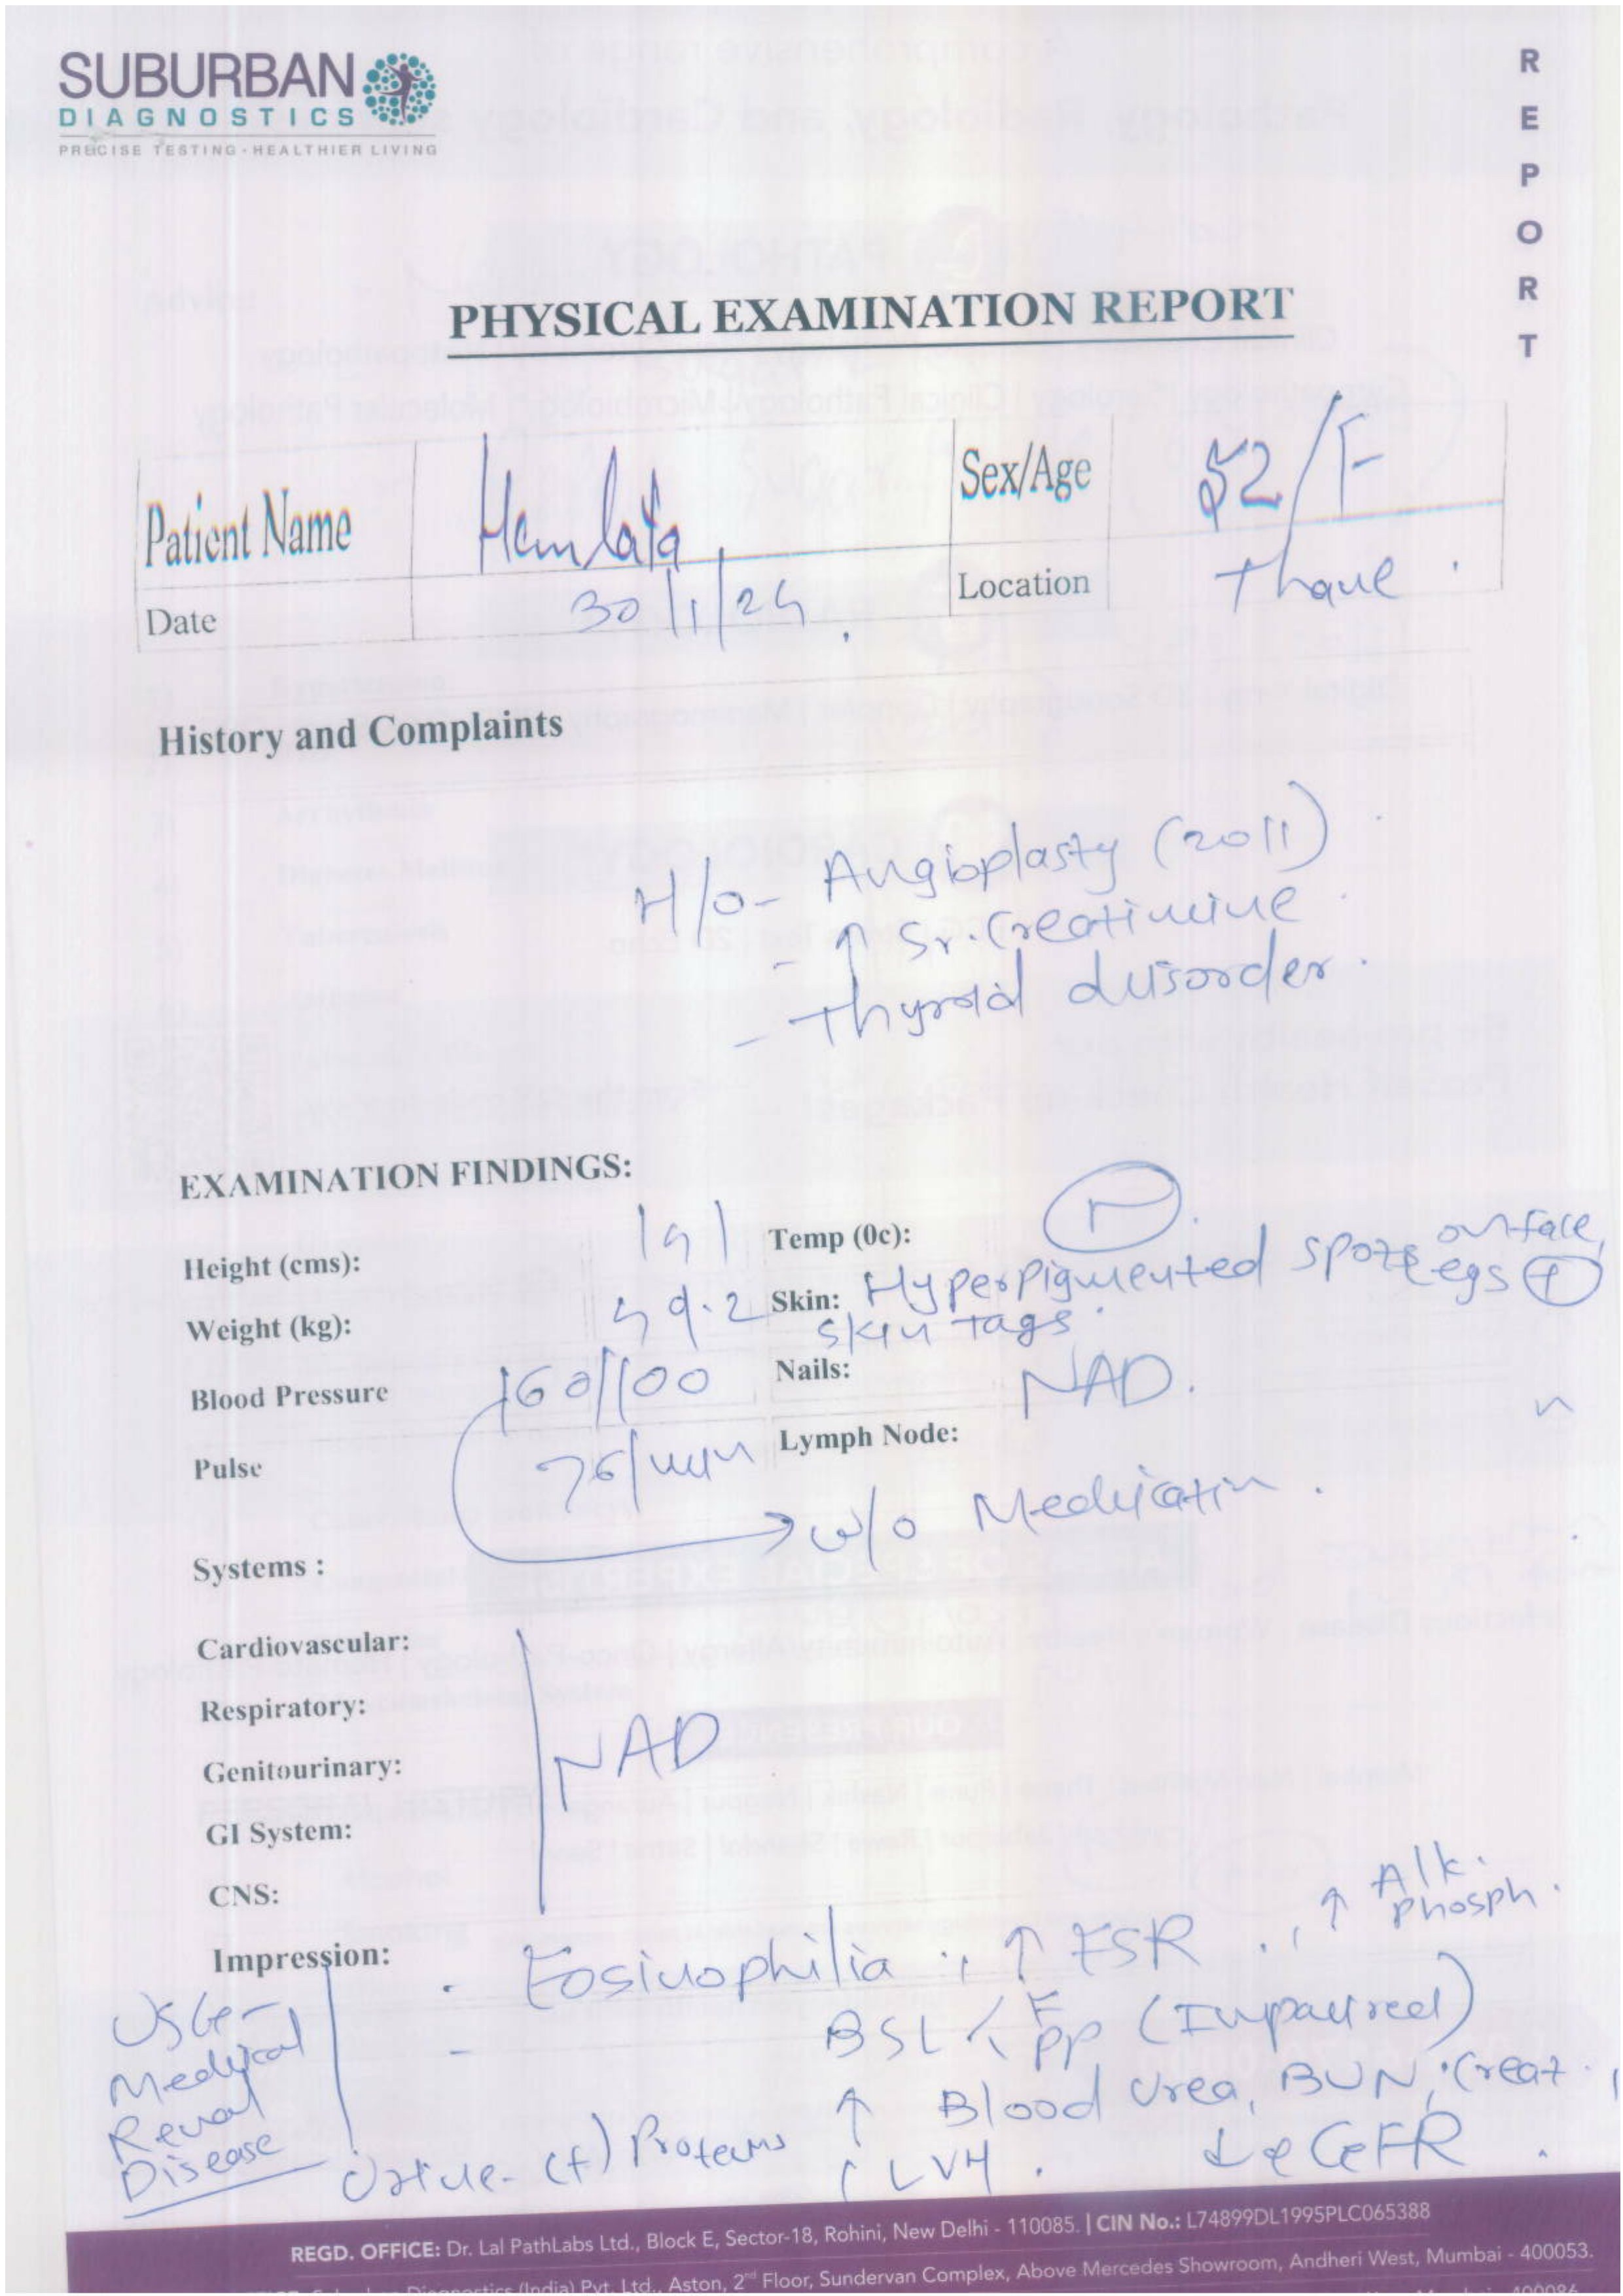 SUBURBAN
DIAGNOSTICS
PRECISE TESTING - HEALTHIER LIVING
REPORT
PHYSICAL EXAMINATION REPORT
Patient Name Hemlata Sex/Age 52/F
Date 30/1/24 Location Thane
History and Complaints
H/o- Angioplasty (2011)
- ↑ Sr. Creatinine
- Thyroid disorder
EXAMINATION FINDINGS:
Height (cms): 141 Temp (0c): N
Weight (kg): 49.2 Skin: Hyperpigmented spots on face, legs (+)
skin tags
Blood Pressure 160/100 Nails: NAD.
Pulse 76/min Lymph Node:
→ w/o Medication.
Systems :
Cardiovascular:
Respiratory:
Genitourinary: NAD
GI System:
CNS:
Impression: Eosinophilia, ↑ ESR, ↑ Alk. phosph.
BSL < F PP (Impaired)
↑ Blood Urea, BUN, Creat.,
↓ eGFR
Urine- (+) Proteins, LVH.
USG-
Medical
Renal
Disease
REGD. OFFICE: Dr. Lal PathLabs Ltd., Block E, Sector-18, Rohini, New Delhi - 110085. | CIN No.: L74899DL1995PLC065388
Diagnostics (India) Pvt. Ltd., Aston, 2nd Floor, Sundervan Complex, Above Mercedes Showroom, Andheri West, Mumbai - 400053.